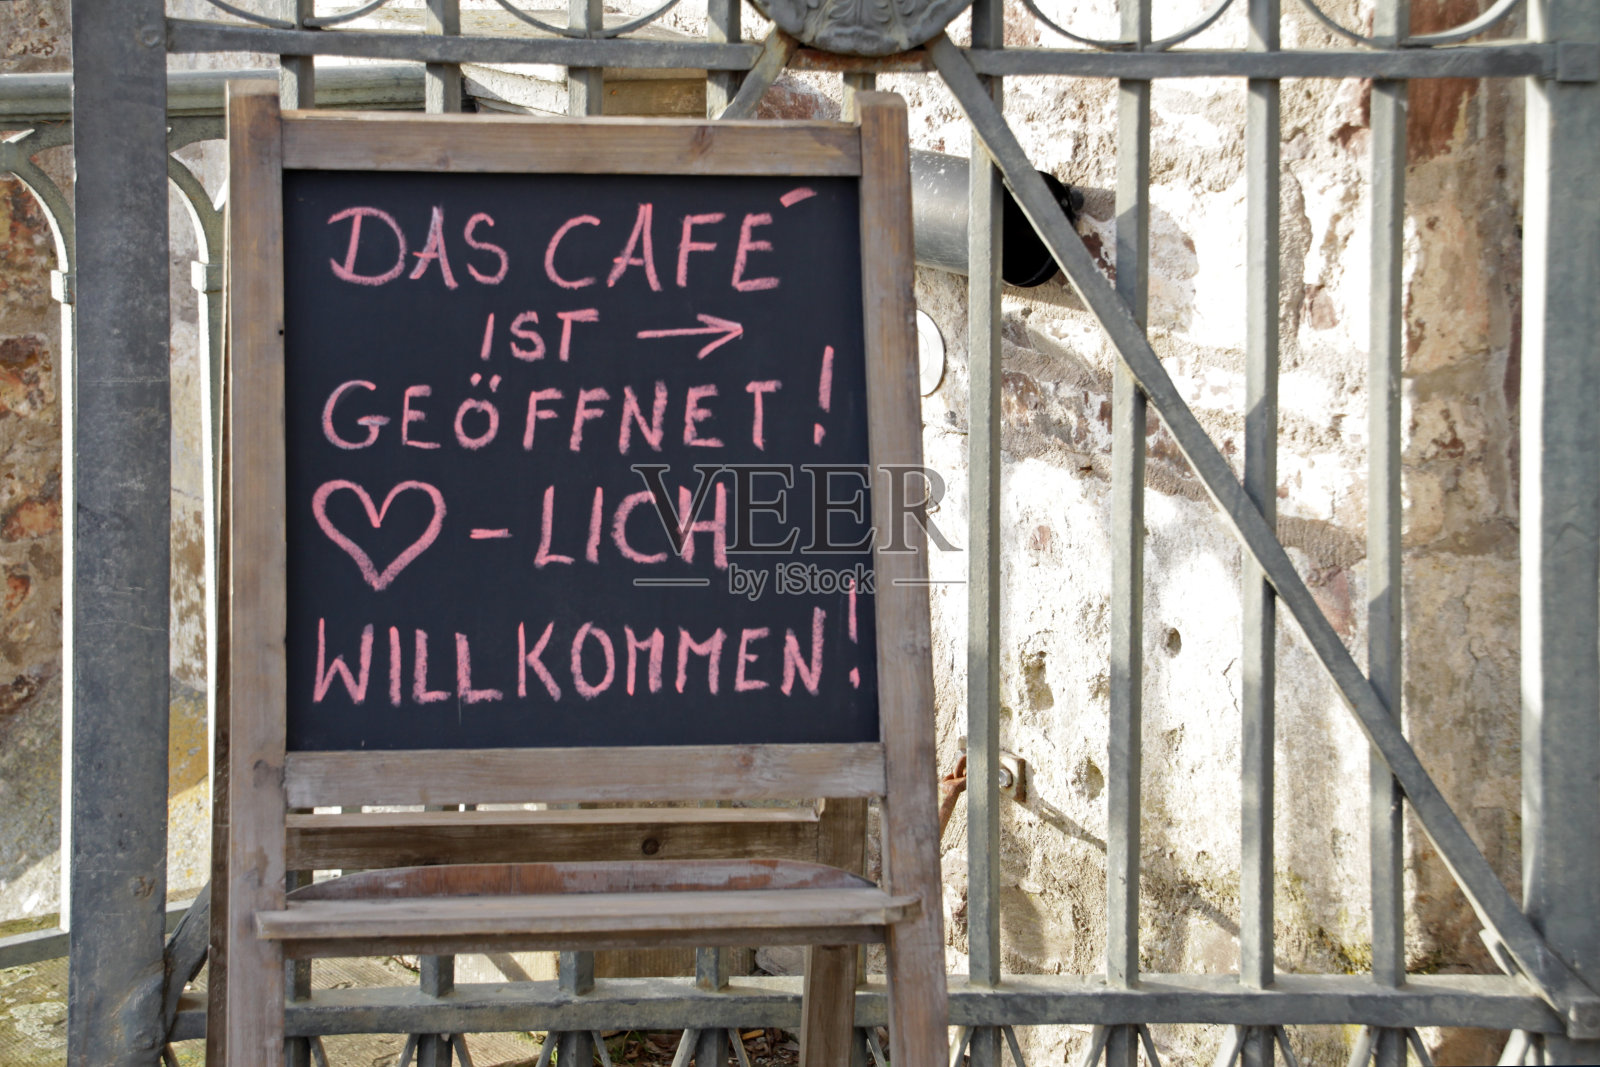 DAS CAFÉ
IST →
GEÖFFNET!
♡-LICH
WILLKOMMEN!
VEER
by iStock